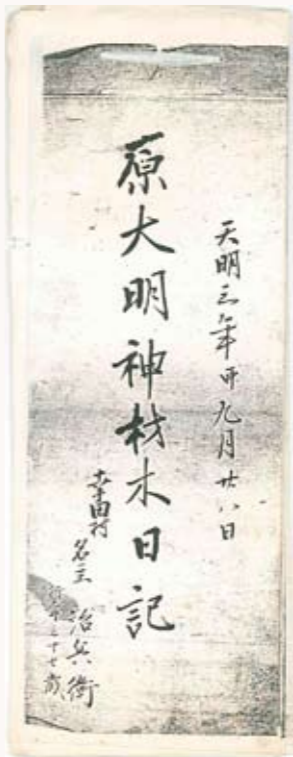 天明三年卯九月廿八日
原大明神材木日記
幸田村
名主 治兵衛
十七歳